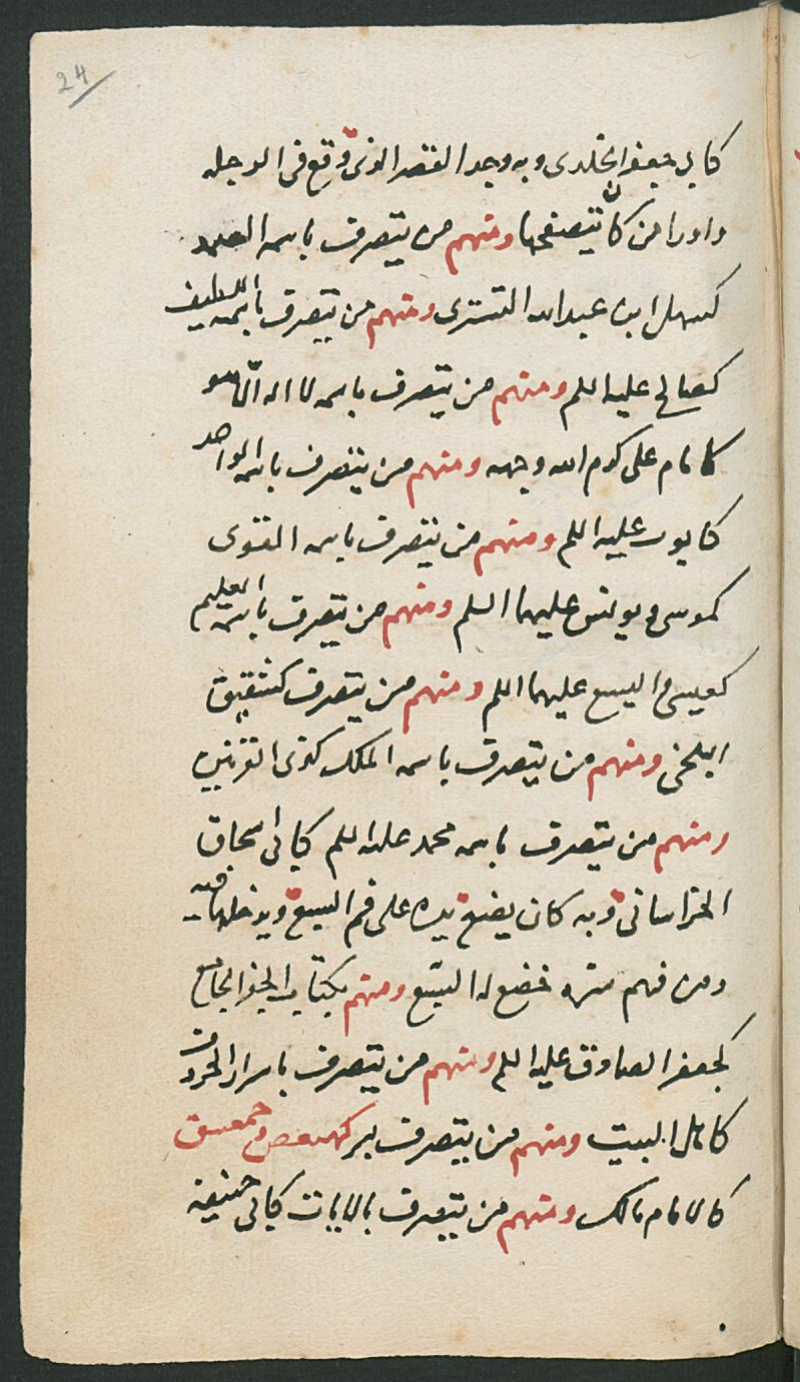 24
كابي جعفر الخلدى وبه وجد الفص الذى وقع فى الدجله
واوراقن كان يتصفحها ومنهم من يتصرف باسمه الصمد
كسهل ابن عبد الله التسترى ومنهم من يتصرف باسمه اللطيف
كصالح عليه اللم ومنهم من يتصرف باسمه لا اله الا هو
كالامام على كرم الله وجهه ومنهم من يتصرف باسمه الواحد
كايوب عليه اللم ومنهم من يتصرف باسمه القوى
كموسى ويونس عليهما السلم ومنهم من يتصرف باسمه العليم
كعيسى واليسع عليهما اللم ومنهم من يتصرف كشقيق
البلخى ومنهم من يتصرف باسمه الملك كذى القرنين
ومنهم من يتصرف باسمه محمد عليه اللم كابى اسحاق
الخراسانى وبه كان يضع يده على فم السبع ويدخلها فيه
ومن فهم سره خضع له السبع ومنهم بكتاب الجفر الجامع
كجعفر الصادق عليه اللم ومنهم من يتصرف باسرار الحروف
كاهل البيت ومنهم من يتصرف بسر كهيعص وحمعسق
كالامام مالك ومنهم من يتصرف بالايات كابى حنيفة